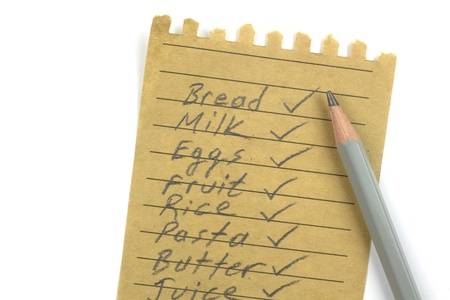 Bread ✓
Milk ✓
Eggs ✓
Fruit ✓
Rice ✓
Pasta ✓
Butter ✓
Juice ✓